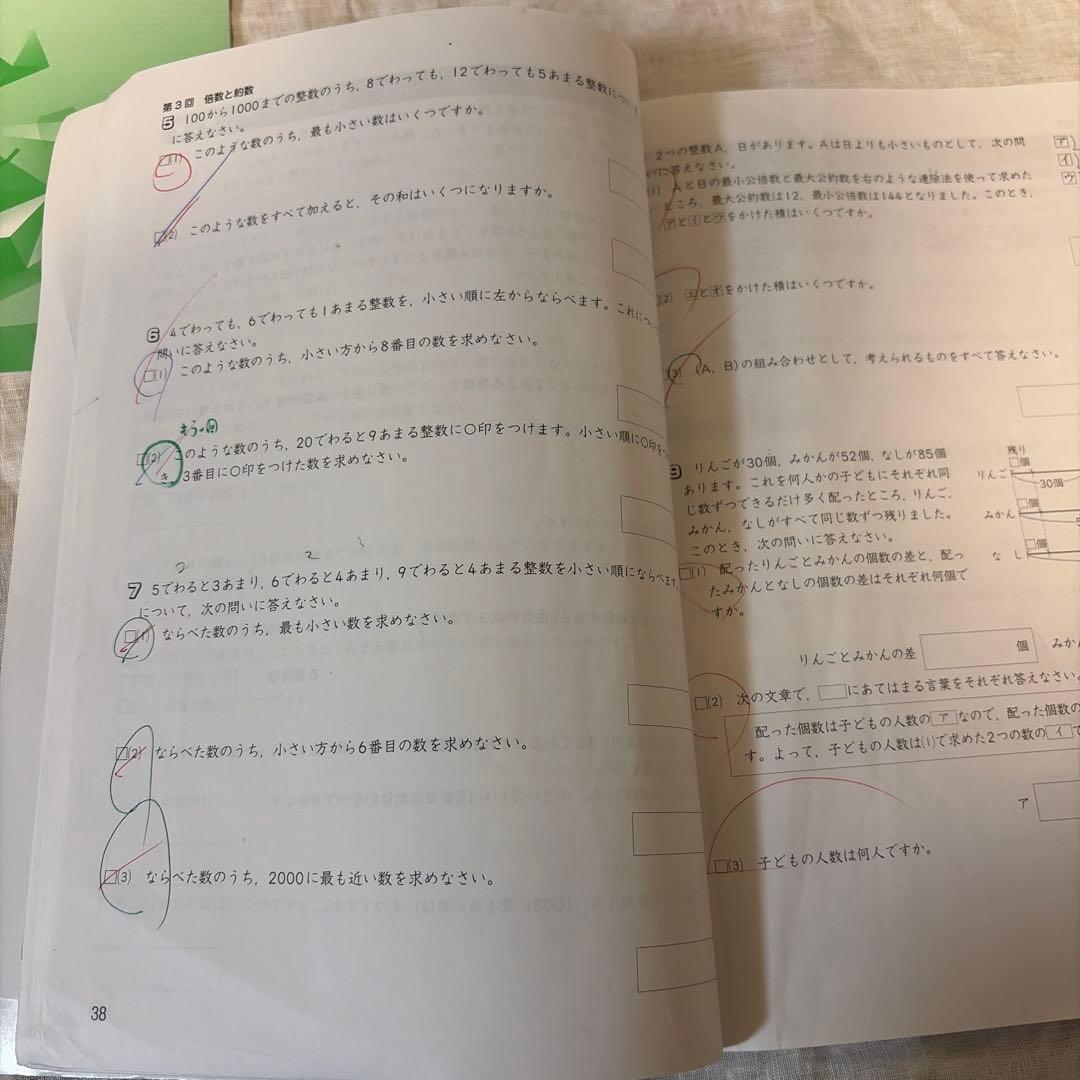 第3回 倍数と約数
5 100から1000までの整数のうち, 8でわっても, 12でわっても5あまる整数につい
に答えなさい。
□(1) このような数のうち, 最も小さい数はいくつですか。
□(2) このような数をすべて加えると, その和はいくつになりますか。
6 4でわっても, 6でわっても1あまる整数を, 小さい順に左からならべます。これについ
問いに答えなさい。
□(1) このような数のうち, 小さい方から8番目の数を求めなさい。
□(2) このような数のうち, 20でわると9あまる整数に○印をつけます。小さい順に○印をつ
3番目に○印をつけた数を求めなさい。
2 3
7 5でわると3あまり, 6でわると4あまり, 9でわると4あまる整数を小さい順にならべます。
について, 次の問いに答えなさい。
□(1) ならべた数のうち, 最も小さい数を求めなさい。
□(2) ならべた数のうち, 小さい方から6番目の数を求めなさい。
□(3) ならべた数のうち, 2000に最も近い数を求めなさい。
38
2つの整数A, Bがあります。AはBよりも小さいものとして, 次の問
に答えなさい。
(1) AとBの最小公倍数と最大公約数を右のような連除法を使って求めた
ところ, 最大公約数は12, 最小公倍数は144となりました。このとき,
アとイとウをかけた積はいくつですか。
ア
イ
ウ
(2) エとオをかけた積はいくつですか。
(3) (A, B)の組み合わせとして, 考えられるものをすべて答えなさい。
9 りんごが30個, みかんが52個, なしが85個
あります。これを何人かの子どもにそれぞれ同
じ数ずつできるだけ多く配ったところ, りんご,
みかん, なしがすべて同じ数ずつ残りました。
このとき, 次の問いに答えなさい。
残り
□個
りんご
30個
□個
みかん
□個
なし
□(1) 配ったりんごとみかんの個数の差と, 配っ
たみかんとなしの個数の差はそれぞれ何個で
すか。
りんごとみかんの差 個 みかん
□(2) 次の文章で, □にあてはまる言葉をそれぞれ答えなさい。
配った個数は子どもの人数のアなので, 配った個数の
す。よって, 子どもの人数は(1)で求めた2つの数のイで
ア
□(3) 子どもの人数は何人ですか。